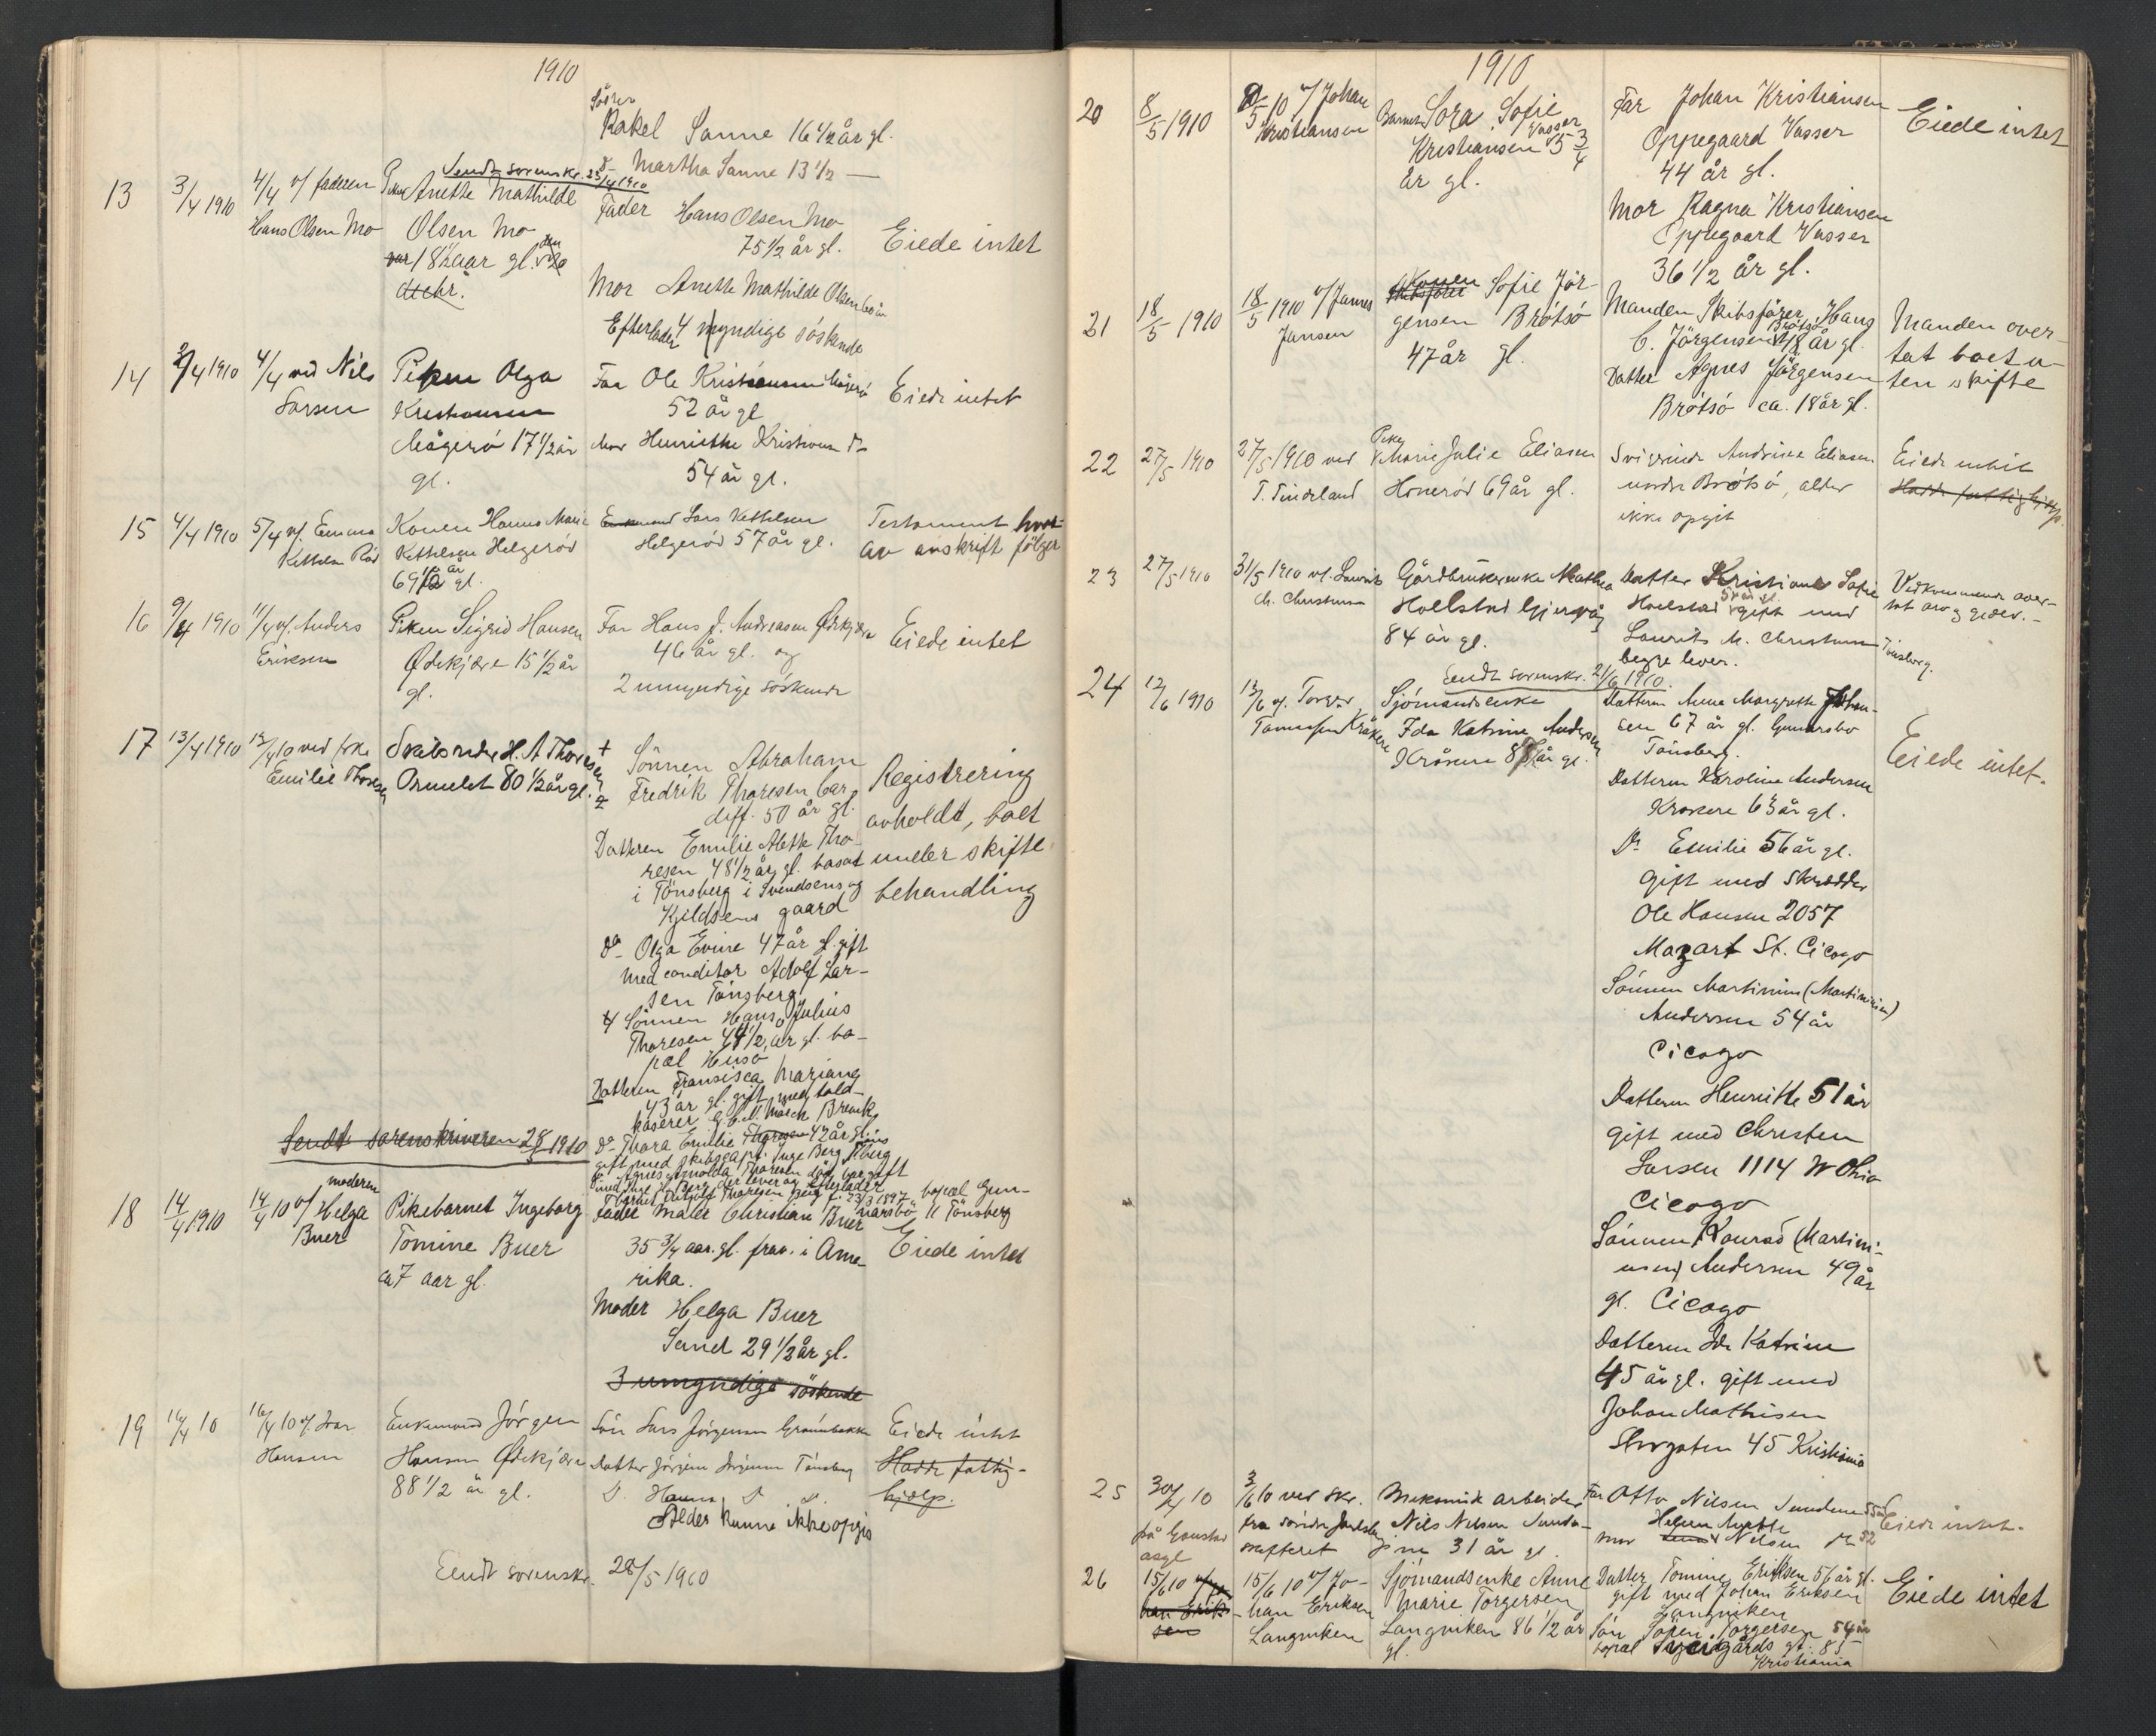 1910
Söster
Rakel Sanne 16 1/2 år gl.
d- Martha Sanne 13 1/2 —
Sendt sorenskr. 25/4 1910
13
3/4 1910
4/4 v/ faderen
Hans Olsen Mo
Piken Anette Mathilde
Olsen Mo
18 1/2 aar gl.
Fader Hans Olsen Mo
75 1/2 år gl.
Mor Anette Mathilde Olsen 60 år
Efterlader 4 myndige söskende
Eiede intet
14
2/4 1910
4/4 ved Nils
Larsen
Piken Olga
Kristiansen
Mågerö 17 1/2 år
gl.
Far Ole Kristiansen Mågerö
52 år gl
Mor Henriette Kristiansen do
54 år gl.
Eiede intet
15
4/4 1910
5/4 v/ Emma
Kettelsen Röd
Konen Hanna Marie
Kettelsen Helgeröd
69 1/2 år gl.
Enkemand Lars Kettelsen
Helgeröd 57 år gl.
Testament hvor-
av avskrift fölger
16
9/4 1910
11/4 v/ Anders
Eriksen
Piken Sigrid Hansen
Ödekjære 15 1/2 år
gl.
Far Hans J. Andreasen Ödekjær
46 år gl. og
2 umyndige söskende
Eiede intet
17
13/4 1910
15/4 10 ved frk.
Emilie Thoresen
Skibsreder H. A Thoresen
Ormelet 80 1/2 år gl.
Sönnen Abraham
Fredrik Thoresen Car-
diff. 50 år gl.
Datteren Emilie Alette Tho-
resen 48 1/2 år gl. bosat
i Tönsberg i Svendsens og
Kjeldsens gaard
do- Olga Evine 47 år gl. gift
med conditor Adolf Lar-
sen Tönsberg
4 Sönnen Hans Julius
Thoresen 44 1/2 år gl. bo-
pæl Husö
Datteren Fransisca Mariane
43 år gl. gift med told-
kaserer G. C. N. Masch Brevik
do Thora Emilie Thoresen 42 år gl.
gift med skibscapt. Inge Berg
Agnes Arnolda Thoresen död, var gift
med Inge H. Berg, der lever og efterlader
Barnet Fritjolf Thoresen Berg f. 23/3 1897 bopæl Gun-
narsbö Tönsberg
Registrering
avholdt, boet
under skifte
behandling
Sendt sorenskriveren 28/5 1910
18
14/4 1910
14/4 10 v/ moderen
Helga
Buer
Pikebarnet Ingeborg
Tomine Buer
ca 7 aar gl.
Fader Maler Christian Buer
35 3/4 aar. gl. frav. i Ame-
rika.
Moder Helga Buer
Sand 29 1/2 år gl.
3 umyndige söskende
Eiede intet
19
16/4 10
16/4 10 v/ Ivar
Hansen
Enkemand Jörgen
Hansen Ödekjære
88 1/2 år gl.
Sön Lars Jörgensen Grönnbakke
Datter Jörgine Jörgensen Tönsberg
D. Hanna D. D.
Alder kunne ikke opgis
Eiede intet
Hadde fattig-
hjælp.
Sendt sorenskr. 28/5 1910
1910
20
8/5 1910
10/5 10 v/ Johan
Kristiansen
Barnet Sofie
Kristiansen Vasser 5 3/4
år gl.
Far Johan Kristiansen
Oppegaard Vasser
44 år gl.
Mor Ragna Kristiansen
Oppegaard Vasser
36 1/2 år gl.
Eiede intet
21
18/5 1910
18/5 1910 v/ Jannes
Jansen
Konen Sofie Jör-
gensen Brötsö
47 år gl.
Manden Skibsförer Hans
C. Jörgensen Brötsö 48 år gl.
Datter Agnes Jörgensen
Brötsö ca. 18 år gl.
Manden over-
tat boet u-
ten skifte
22
27/5 1910
27/5 1910 ved
T. Tinderland
Pike Marie Julie Eliasen
Honeröd 69 år gl.
Svigerinde Andrine Eliasen
nordre Brötsö, alder
ikke opgit
Eiede intet
Hadde fattighjælp.
23
27/5 1910
31/5 1910 v/ Laurits
M. Christensen
Gårdbrukerenke Mathea
Hoelstad Gjervåg
84 år gl.
Datter Kristiane Sofie
Hoelstad gift med
Laurits M. Christensen Tönsberg.
begge lever.
Vedkommende over-
tat arv og gjeld. -
Sendt sorenskr. 21/6 1910.
24
12/6 1910
13/6 v/ Torger
Tomassen Kråkere
Sjömandsenke
Ida Katrine Andersen
Kråkere 88 år gl.
Datteren Anne Margrethe Johan-
sen 67 år gl. Gunnarsbo
Tönsberg.
Datteren Karoline Andersen
Krakere 63 år gl.
Do Emilie 56 år gl.
gift med Skredder
Ole Hansen 2057
Mozart St. Cicago
Sönnen Martinius (Martinisen)
Andersen 54 år
Cicago
Datteren Henriette 51 år
gift med Christen
Larsen 1114 W Ohio
Cicago
Sönnen Konrad (Martini-
usen) Andersen 49 år
gl. Cicago
Datteren Ida Katrine
45 år gl. gift med
Johan Mathisen
Storgaten 45 Kristiania
Eiede intet.
25
30/4 10
på Gaustad
asyl
3/6 10 ved skr.
fra söndre Jarlsberg
skifteret
Mekanisk arbeider
Nils Nilsen Sunde-
ne 31 år gl.
Far Otto Nilsen Sundene 55 år
Mor Helene Agethe Nilsen do 52
Eiede intet.
26
15/6 10 v/ Jo-
han Erik-
sen
15/6 10 v/ Jo-
han Eriksen
Langviken
Sjömandsenke Anne
Marie Torgersen
Langviken 86 1/2 år
gl.
Datter Tomine Eriksen 56 år gl.
gift med Johan Eriksen
Langviken
Sön Sören Torgersen 54 år
bopæl Sveigårds gt. 85
Kristiania
Eiede intet